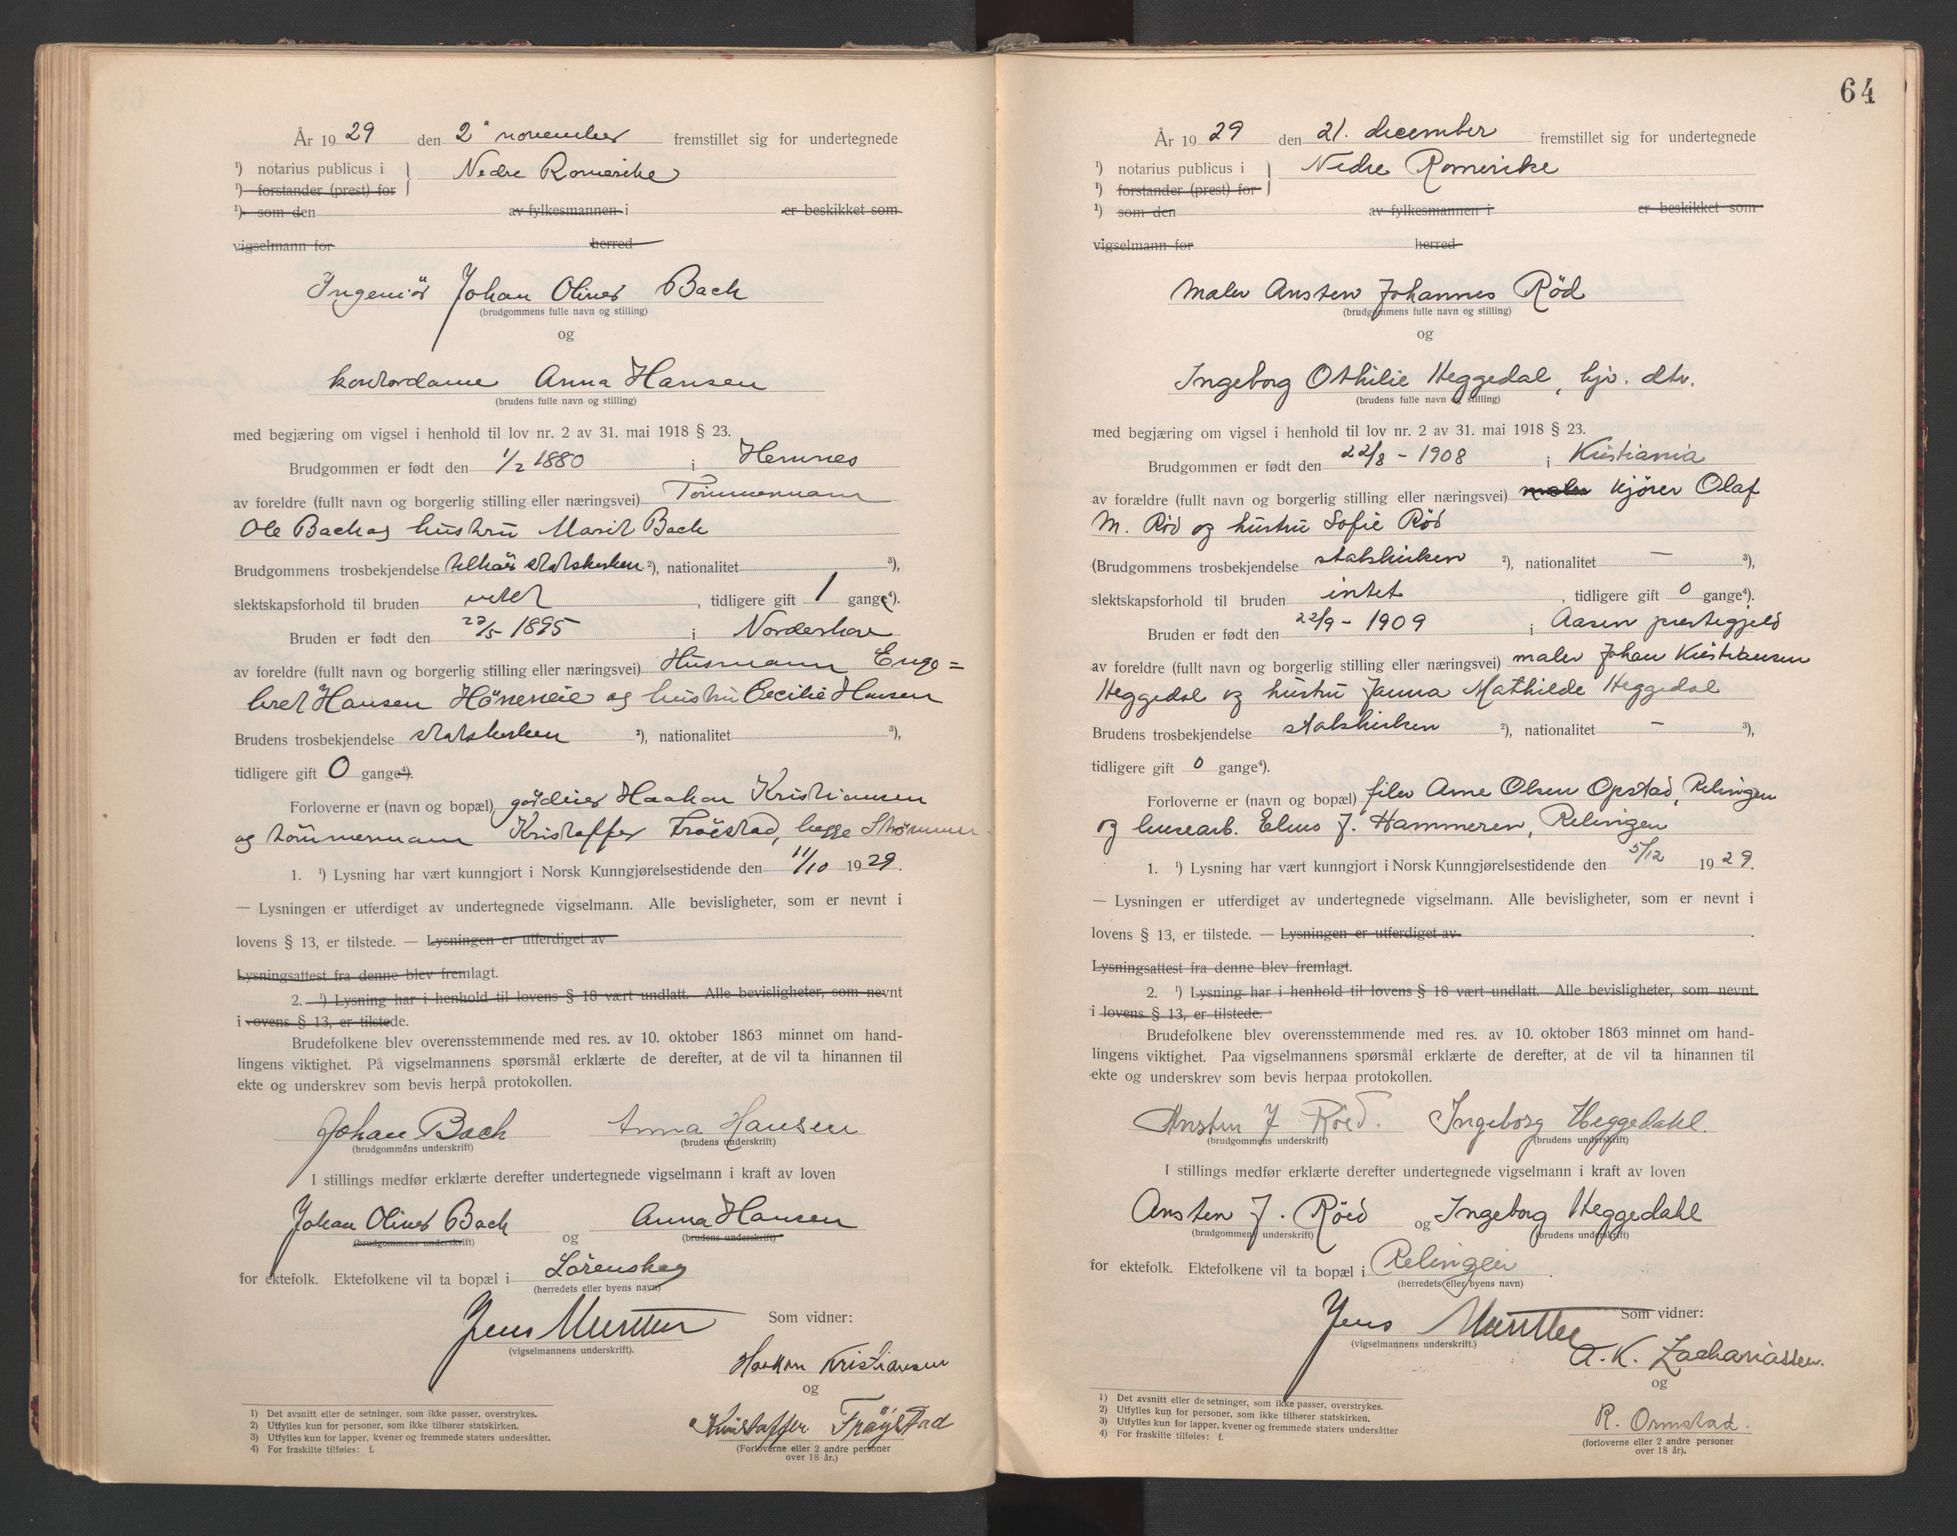 År 1929 den 2' november fremstillet sig for undertegnede
¹) notarius publicus i } Nedre Romerike
¹) forstander (prest) for
¹) som den av fylkesmannen i er beskikket som
vigselmann for herred
Ingeniör Johan Oliver Bach
(brudgommens fulle navn og stilling)
og
kontordame Anna Hansen
(brudens fulle navn og stilling)
med begjæring om vigsel i henhold til lov nr. 2 av 31. mai 1918 § 23.
Brudgommen er født den 1/2 1880 i Hemnes
av foreldre (fullt navn og borgerlig stilling eller næringsvei) Tömmermann
Ole Bach og hustru Marit Bach
Brudgommens trosbekjendelse tilhör statskirken ²), nationalitet ³),
slektskapsforhold til bruden intet, tidligere gift 1 gange⁴).
Bruden er født den 27/5 1895 i Norderhov
av foreldre (fullt navn og borgerlig stilling eller næringsvei) Husmann Enge=
bret Hansen Höneneie og hustru Cecilie Hansen
Brudens trosbekjendelse statskirken ²), nationalitet ³),
tidligere gift 0 gange⁴).
Forloverne er (navn og bopæl) gårdeier Haakon Kristiansen
og tömmermann Kristoffer Fröistad, begge Strømmen
1. ¹) Lysning har vært kunngjort i Norsk Kunngjørelsestidende den 11/10 1929.
— Lysningen er utferdiget av undertegnede vigselmann. Alle bevisligheter, som er nevnt i
lovens § 13, er tilstede. — Lysningen er utferdiget av
Lysningsattest fra denne blev fremlagt.
2. ¹) Lysning har i henhold til lovens § 18 vært undlatt. Alle bevisligheter, som nevnt
i lovens § 13, er tilstede.
Brudefolkene blev overensstemmende med res. av 10. oktober 1863 minnet om hand-
lingens viktighet. På vigselmannens spørsmål erklærte de derefter, at de vil ta hinannen til
ekte og underskrev som bevis herpå protokollen.
Johan Bach Anna Hansen
(brudgommens underskrift) (brudens underskrift)
I stillings medfør erklærte derefter undertegnede vigselmann i kraft av loven
Johan Oliver Bach og Anna Hansen
(brudgommens underskrift) (brudens underskrift)
for ektefolk. Ektefolkene vil ta bopæl i Lörenskog
(herredets eller byens navn)
Som vidner:
Jens Münther
(vigselmannens underskrift).
Haakon Kristiansen
og
Kristoffer Fröystad
(Forloverne eller 2 andre personer
over 18 år.)
1) Det avsnitt eller de setninger, som ikke passer, overstrykes.
2) Utfylles kun for personer, som ikke tilhører statskirken.
3) Utfylles kun for lapper, kvener og fremmede staters undersåtter.
4) For fraskilte tilføies: f.
64
År 1929 den 21. december fremstillet sig for undertegnede
¹) notarius publicus i } Nedre Romerike
¹) forstander (prest) for
¹) som den av fylkesmannen i er beskikket som
vigselmann for herred
Maler Ansten Johannes Röd
(brudgommens fulle navn og stilling)
og
Ingeborg Othilie Heggedal, hjv. dtr.
(brudens fulle navn og stilling)
med begjæring om vigsel i henhold til lov nr. 2 av 31. mai 1918 § 23.
Brudgommen er født den 22/8 - 1908 i Kristiania
av forældre (fullt navn og borgerlig stilling eller næringsvei) maler kjörer Olaf
M. Röd og hustru Sofie Röd
(Brudgommens trosbekjendelse statskirken ²), nationalitet — ³),
slektskapsforhold til bruden intet, tidligere gift 0 gange⁴).
Bruden er født den 22/9 - 1909 i Aasen prestegjeld
av foreldre (fullt navn og borgerlig stilling eller næringsvei) maler Johan Kristiansen
Heggedal og hustru Janna Mathilde Heggedal
Brudens trosbekjendelse statskirken ²), nationalitet — ³),
tidligere gift 0 gange⁴).
Forloverne er (navn og bopæl) filer Arne Olsen Opstad, Relingen
og brusearb. J. Hammeren, Relingen
1. ¹) Lysning har vært kunngjort i Norsk Kunngjørelsestidende den 5/12 1929.
— Lysningen er utferdiget av undertegnede vigselmann. Alle bevisligheter, som er nevnt i
lovens § 13, er tilstede. — Lysningen er utferdiget av.
Lysningsattest fra denne blev fremlagt.
2. ¹) Lysning har i henhold til lovens § 18 vært undlatt. Alle bevisligheter, som nevnt
i lovens § 13, er tilstede.
Brudefolkene blev overensstemmende med res. av 10. oktober 1863 minnet om hand-
lingens viktighet. Paa vigselmannens spørsmål erklærte de derefter, at de vil ta hinannen til
ekte og underskrev som bevis herpaa protokollen.
Ansten J Röed. Ingeborg Heggedahl.
(brudgommens underskrift) (brudens underskrift)
I stillings medfør erklærte derefter undertegnede vigselmann i kraft av loven
Ansten J. Röed og Ingeborg Heggedahl
(brudgommens underskrift) (brudens underskrift)
for ektefolk. Ektefolkene vil ta bopæl i Relingen.
(herredets eller byens navn)
Som vidner:
Jens Münther
(vigselmannens underskrift)
A. K. Zachariassen.
og
R. Ormstad.
(forloverne eller 2 andre personer
over 18 år).
1) Det avsnitt eller de setninger, som ikke passer, overstrykes.
2) Utfylles kun for personer, som ikke tilhører statskirken.
3) Utfylles kun for lapper, kvener og fremmede staters undersåtter
4) For fraskilte tilføies: f.